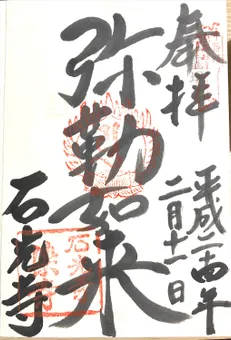 奉拝
平成二十四年
二月十一日
弥勒如来
石光寺